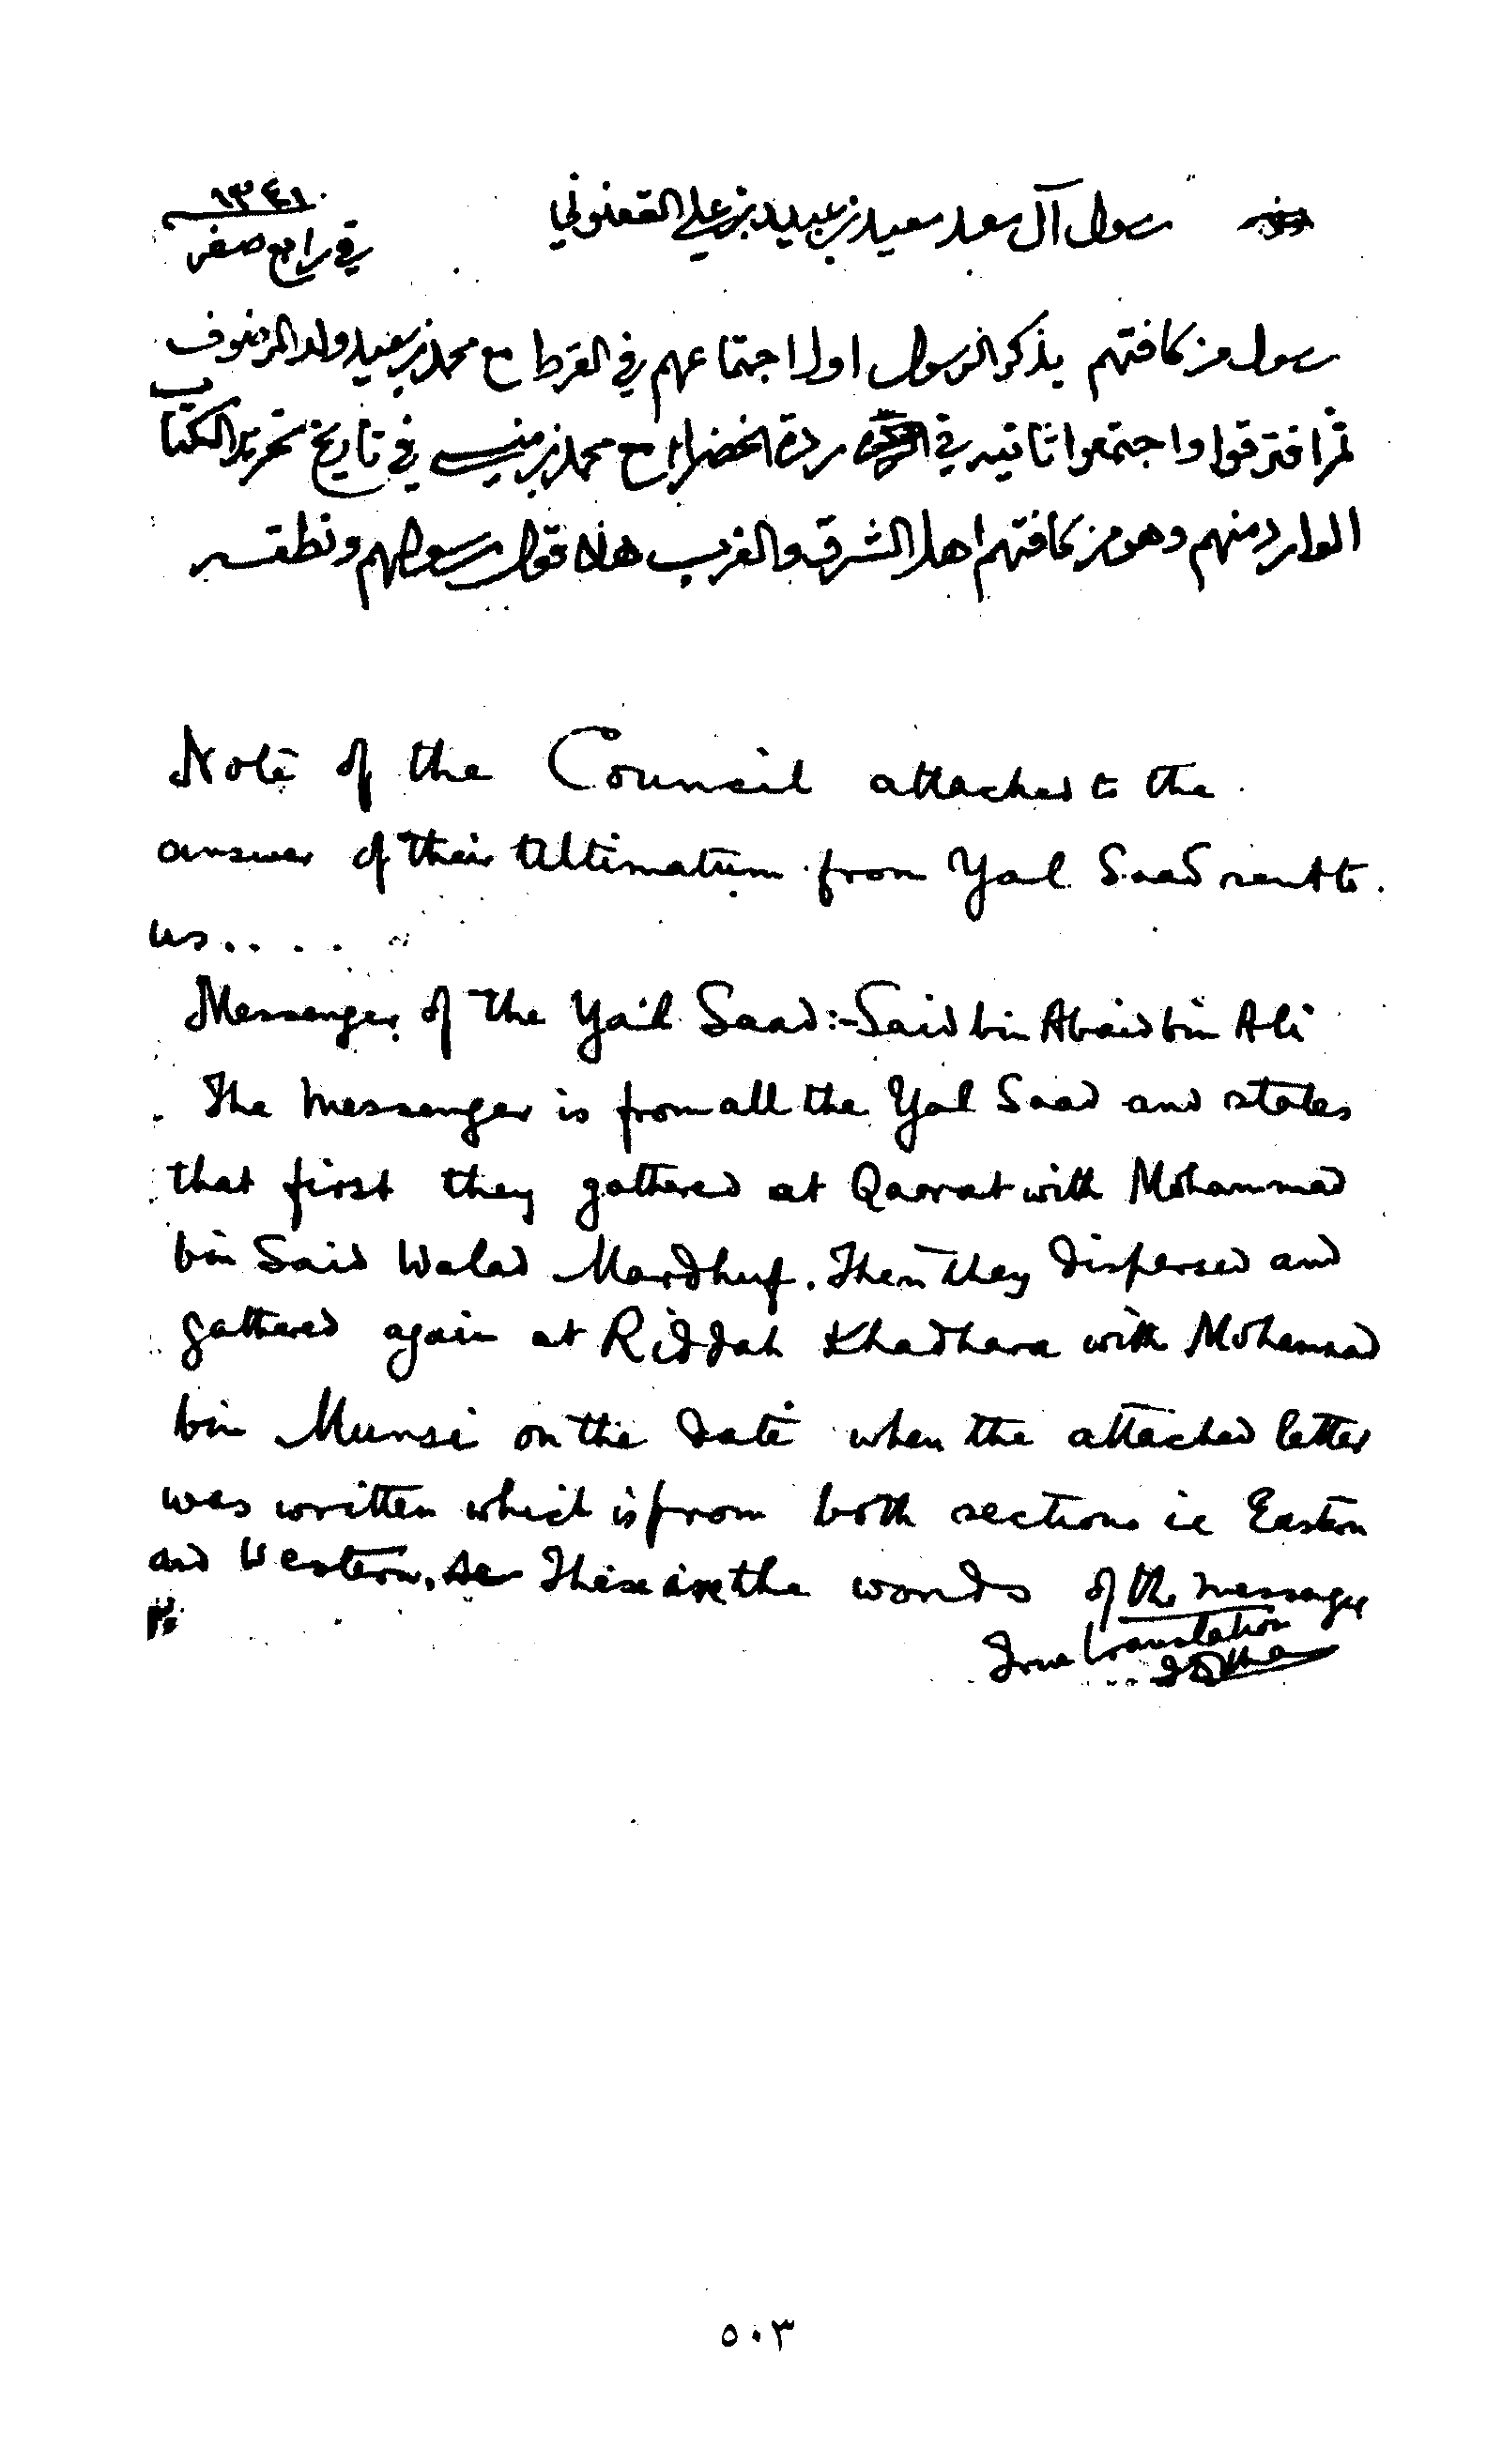 رسول آل سعد سعيد بن عبيد بن علي القعنوني
١٣٤١
في رابع صفر
رسول من كافتهم يذكر الرسول اولا اجتماعهم في القرط مع محمد بن سعيد ولد المرضوف
ثم افترقوا واجتمعوا ثانيه في ردة الخضراء مع محمد بن منسي في تاريخ تحرير الكتاب
الوارد منهم وهو من كافتهم اهل الشرق والغرب هذا قول رسولهم ونطقه
Note of the Council attached to the
answer of their Ultimatum from Yal Saad sent to
us....
Messenger of the Yail Saad:- Said bin Abaid bin Ali
The messenger is from all the Yal Saad and states
that first they gathered at Qarrat with Mohammad
bin Said Walad Mardhuf. Then they dispersed and
gathered again at Riddah Khadhara with Mohammad
bin Munsi on the date when the attached letter
was written which is from both sections ie Eastern
and Western. These are the words of the messenger
True translation
٥٠٣